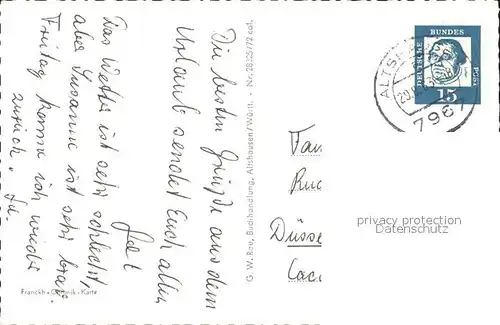 Die besten Grüße aus dem
Urlaub sendet Euch allen
Das Wetter ist sehr schlecht,
aber Susanne ist sehr brav.
Freitag komme ich wieder
zurück.
Franckh-Chronik-Karte
G. W. Rau, Buchhandlung, Altshausen/Württ. · Nr. 28325/72 col.
DEUTSCHE BUNDESPOST
15
ALTSH
7967
Fam
Düsse
privacy protection
Datenschutz